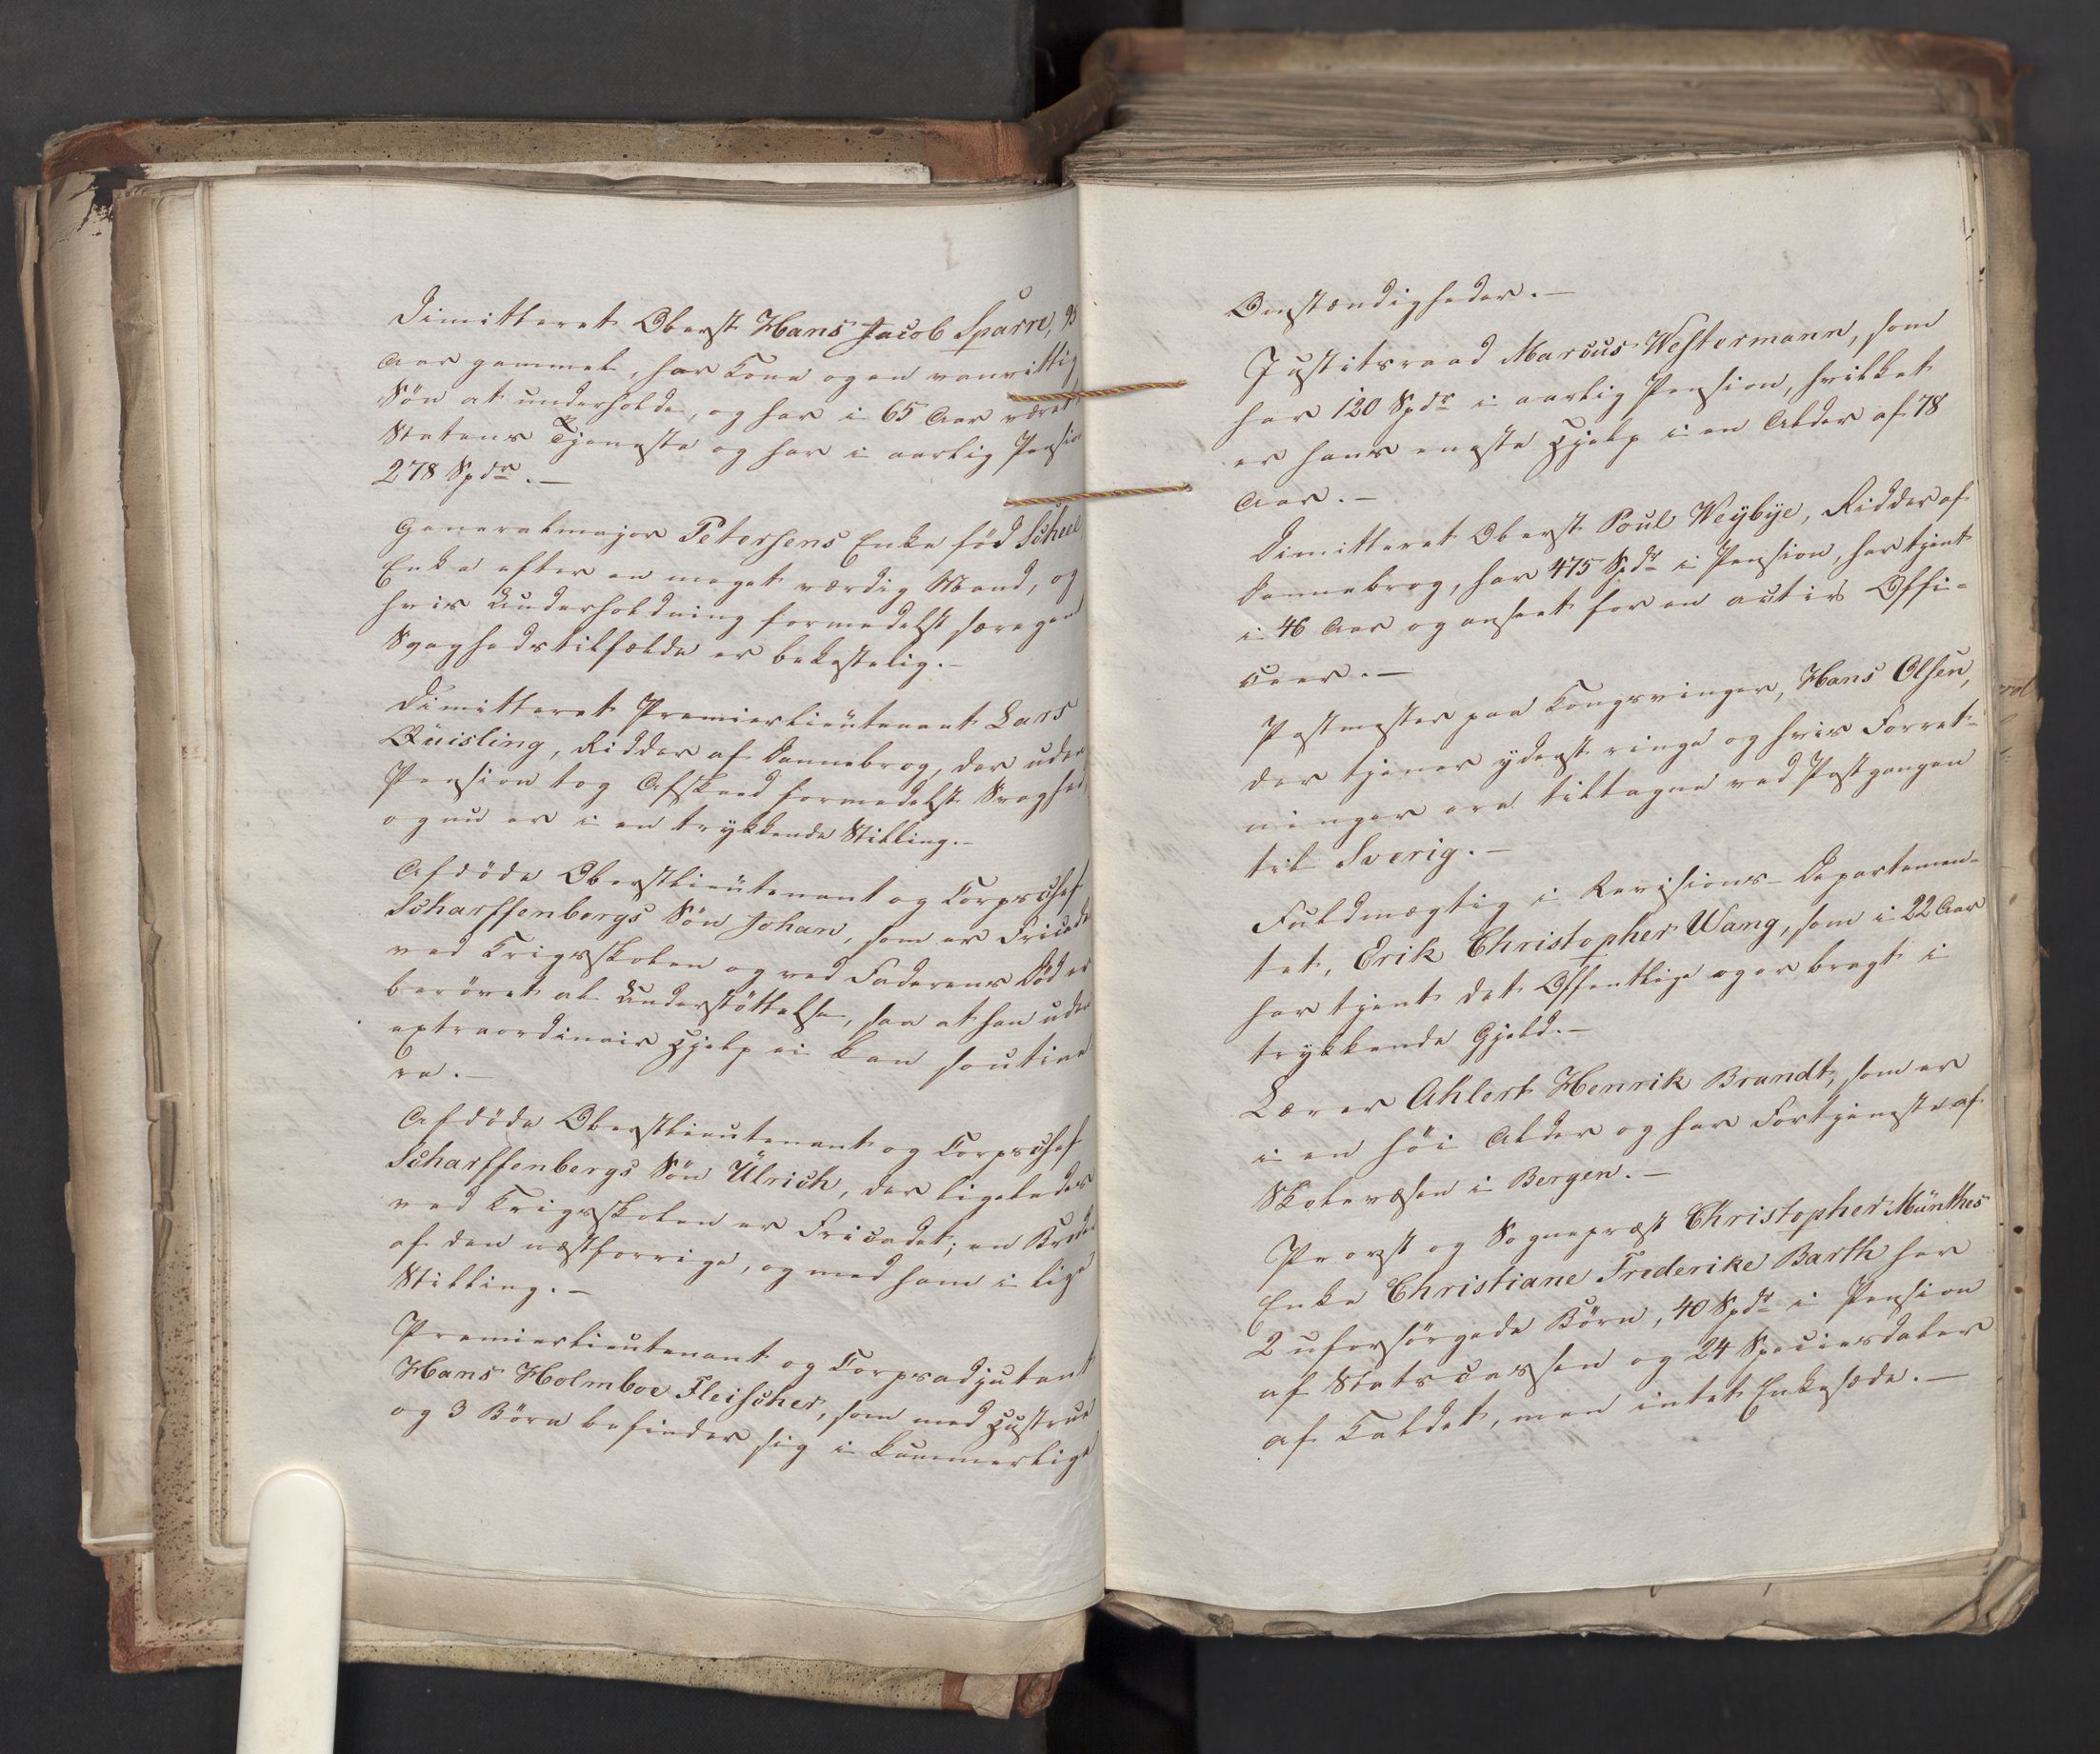 Dimitteret Oberst Hans Jacob Sparre,
Aar gammel, har Kone og en vanvittig
Sön at underholde, og har i 65 Aar været
Statens Tjeneste og har i aarlig Pension
278 Spdr.—
Generalmajor Petersens Enke fød Scheel
Enke efter en meget værdig Mand, og
hvis Underholdning formedelst særegen
Svaghedstilfælde er bekostelig.—
Dimitteret Premierlieutenant Lars
Quisling, Ridder af Dannebrog, der uden
Pension tog Afskeed formedelst Svaghed
og nu er i en trykkende Stilling.—
Afdöde Oberstlieutenant og Corpschef
Scharffenbergs Sön Johan, som er Fricadet
ved Krigsskolen og ved Faderens Död er
berövet al Understöttelse, saa at han uden
extraordinair Hjelp ei kan soutine
re.—
Afdöde Oberstlieutenant og Corpschef
Scharffenbergs Sön Ulrich, der ligeledes
ved Krigsskolen er Fricadet; en Broder
af den næstforrige, og med ham i lige
Stilling.—
Premierlieutenant og Corpsadjutant
Hans Holmboe Fleischer, som med Hustrue
og 3 Börn befinder sig i kummerlige
Omstændigheder.—
Justitsraad Marcus Westermann, som
har 120 Spdr i aarlig Pension, hvilket
er hans eneste Hjelp i en Alder af 78
Aar.—
Dimitteret Oberst Poul Weybye, Ridder af
Dannebrog, har 475 Spdr i Pension, har tjent
i 46 Aar og anseet for en activ Offi-
ceer.—
Postmester paa Kongsvinger, Hans Olsen,
der tjener yderst ringe og hvis Forret-
ninger ere tiltagne ved Postgangen
til Sverig.—
Fuldmægtig i Revisions-Departemen-
tet, Erik Christopher Wang, som i 22 Aar
har tjent det Offentlige og er bragt i
trykkende Gjeld.—
Lærer Ahlert Henrik Brandt, som er
i en höi Alder og har Fortjeneste af
Skolevæsen i Bergen.—
Provst og Sognepræst Christopher Münthes
Enke Christiane Frederike Barth har
2 uforsörgede Börn, 40 Spdr i Pension
af Statscassen og 24 Speciesdaler
af Kaldet, men intet Enkesæde.—